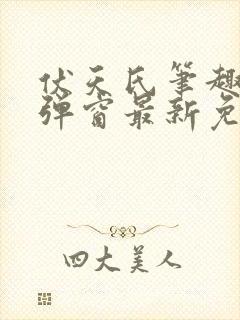 伏天氏笔趣
弹窗最新免
四大美人